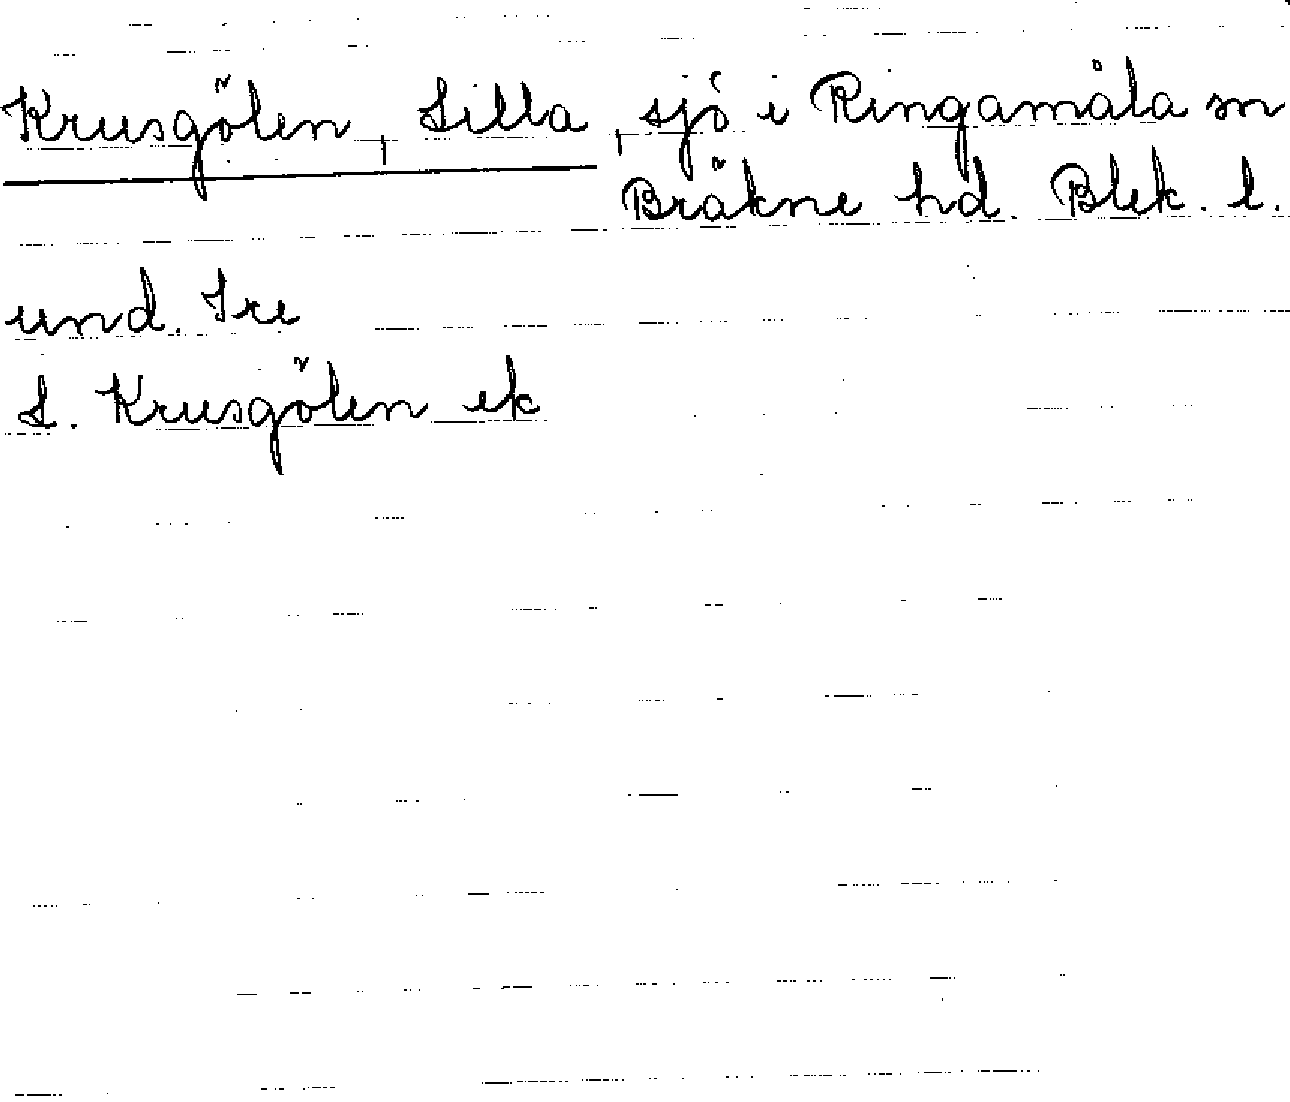 Krusgölen, Lilla, sjö i Ringamåla sn
Bräkne hd. Blek. l.
und. Ire
L. Krusgölen ek